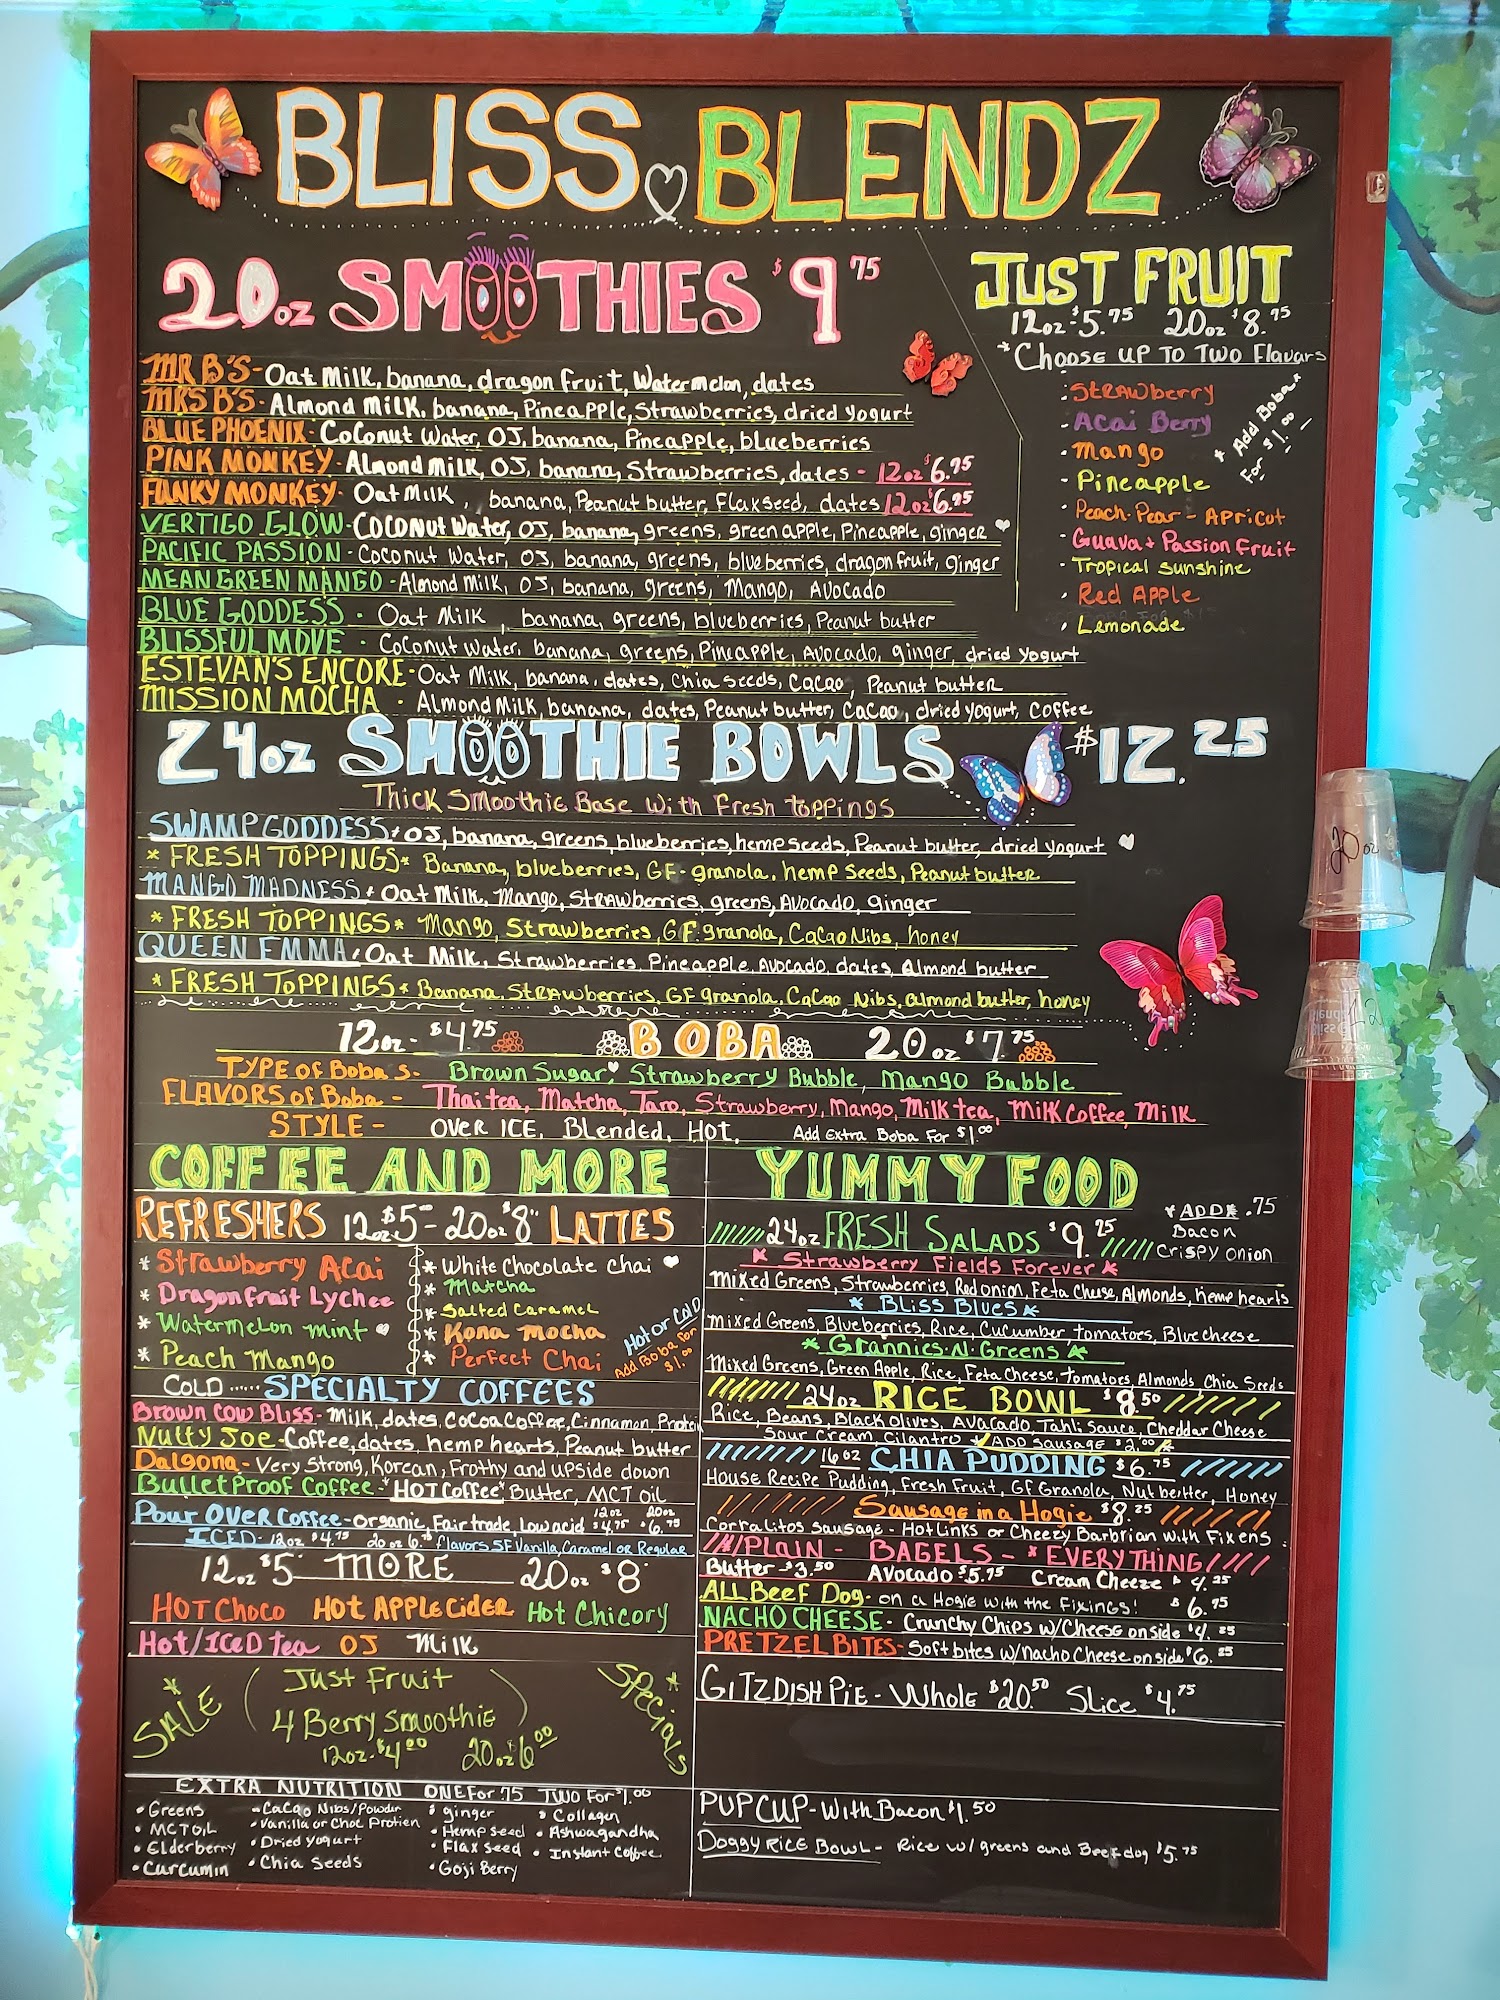 BLISS BLENDZ
20oz SMOOTHIES $9.75
MR B'S - Oat Milk, banana, dragon fruit, Watermelon, dates
MRS B'S - Almond Milk, banana, Pineapple, Strawberries, dried yogurt
BLUE PHOENIX - Coconut Water, OJ, banana, Pineapple, blueberries
PINK MONKEY - Almond Milk, OJ, banana, Strawberries, dates - 12oz $6.75
FUNKY MONKEY - Oat Milk, banana, Peanut butter, Flaxseed, dates 12oz $6.75
VERTIGO GLOW - Coconut Water, OJ, banana, greens, green apple, Pineapple, ginger
PACIFIC PASSION - Coconut Water, OJ, banana, greens, blueberries, dragon fruit, ginger
MEAN GREEN MANGO - Almond Milk, OJ, banana, greens, Mango, Avocado
BLUE GODDESS - Oat Milk, banana, greens, blueberries, Peanut butter
BLISSFUL MOVE - Coconut Water, banana, greens, Pineapple, Avocado, ginger, dried yogurt
ESTEVAN'S ENCORE - Oat Milk, banana, dates, Chia Seeds, Cacao, Peanut butter
MISSION MOCHA - Almond Milk, banana, dates, Peanut butter, Cacao, dried yogurt, Coffee
JUST FRUIT
12oz $5.75 20oz $8.75
*Choose up to two Flavars
- Strawberry
- Acai Berry
- Mango
- Pineapple
- Peach-Pear-Apricot
- Guava + Passion Fruit
- Tropical Sunshine
- Red Apple
- Lemonade
* Add Boba *
For $1.00
24oz SMOOTHIE BOWLS $12.25
Thick Smoothie Base With Fresh Toppings
SWAMP GODDESS: OJ, banana, greens, blueberries, hemp seeds, Peanut butter, dried yogurt
* FRESH TOPPINGS * Banana, blueberries, GF-granola, hemp seeds, Peanut butter
MANGO MADNESS: Oat Milk, Mango, Strawberries, greens, Avocado, ginger
* FRESH TOPPINGS * Mango, Strawberries, GF granola, CaCao Nibs, honey
QUEEN EMMA: Oat Milk, Strawberries, Pineapple, Avocado, dates, Almond butter
* FRESH TOPPINGS * Banana, Strawberries, GF granola, CaCao Nibs, almond butter, honey
12oz - $4.75 BOBA 20oz $7.75
TYPE of Boba's - Brown Sugar, Strawberry Bubble, Mango Bubble
FLAVORS of Boba - Thai tea, Matcha, Taro, Strawberry, Mango, Milk tea, Milk Coffee, Milk
STYLE - OVER ICE, Blended, HOT, Add Extra Boba For $1.00
COFFEE AND MORE
REFRESHERS 12oz $5 - 20oz $8 LATTES
* Strawberry Acai
* Dragonfruit Lychee
* Watermelon mint
* Peach Mango
* White Chocolate Chai
* Matcha
* Salted Caramel
* Kona Mocha
* Perfect Chai
Hot or Cold
Add Boba For
$1.00
COLD ..... SPECIALTY COFFEES
Brown Cow Bliss - Milk, dates, Cocoa Coffee, Cinnamon, Protein
Nutty Joe - Coffee, dates, hemp hearts, Peanut butter
Dalgona - Very Strong, Korean, Frothy and upside down
BulletProof Coffee - "HOT Coffee" Butter, MCT Oil
Pour Over Coffee - organic, Fair trade, Low acid 12oz $4.75 20oz $6.75
ICED - 12oz $4.75 20oz 6.75 flavors SF Vanilla, Caramel or Regular
12oz $5 MORE 20oz $8
HOT Choco Hot Apple Cider Hot Chicory
Hot/Iced Tea OJ Milk
*SALE
Just Fruit
4 Berry Smoothie
12oz - $4.00 20oz $6.00
*Specials
EXTRA NUTRITION ONE For .75 TWO For $1.00
• Greens
• MCT OIL
• Elderberry
• Curcumin
• CaCao Nibs/Powder
• Vanilla or Choc Protien
• Dried yogurt
• Chia Seeds
• ginger
• Hemp Seed
• Flax Seed
• Goji Berry
• Collagen
• Ashwagandha
• Instant Coffee
YUMMY FOOD
24oz FRESH SALADS $9.25
* ADD * .75
Bacon
Crispy onion
* Strawberry Fields Forever *
Mixed Greens, Strawberries, Red onion, Feta Cheese, Almonds, hemp hearts
* Bliss Blues *
Mixed Greens, Blueberries, Rice, Cucumber, tomatoes, Blue cheese
* Grannies-N-Greens *
Mixed Greens, Green Apple, Rice, Feta Cheese, Tomatoes, Almonds, Chia Seeds
24oz RICE BOWL $8.50
Rice, Beans, Black olives, Avacado, Tahli Sauce, Cheddar Cheese
Sour Cream, Cilantro * ADD Sausage $2.00 *
16oz CHIA PUDDING $6.75
House Recipe Pudding, Fresh Fruit, GF Granola, Nut beitter, Honey
Sausage in a Hogie $8.25
Corralitos Sausage - Hot Links or Cheezy Barbrian with Fixens
PLAIN - BAGELS - *EVERYTHING
Butter - $3.50 Avocado $5.75 Cream Cheeze $4.25
ALL Beef Dog - on a Hogie with the Fixings! $6.75
NACHO CHEESE - Crunchy Chips w/Cheese on side $4.25
PRETZEL BITES - Soft bites w/Nacho Cheese on side $6.25
GITZ DISH PIE - Whole $20.50 Slice $4.75
PUP CUP - With Bacon $1.50
Doggy Rice Bowl - Rice w/ greens and Beef dog $5.75
20oz